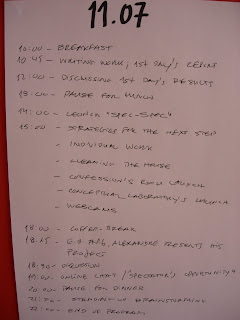 11.07
10:00 - BREAKFAST
10:45 - WRITING WORK; 1st DAY'S RESULT
12:00 - DISCUSSING 1st DAY'S RESULTS
13:00 - PAUSE FOR LUNCH
14:00 - LECTION "SPEC-SPEC"
15:00 - STRATEGIES FOR THE NEXT STEP
- INDIVIDUAL WORK
- CLEANING THE HOUSE
- CONFESSION'S ROOM LAUNCH
- CONCEPTUAL LABORATORY'S LAUNCH
- WEBCAMS
18:00 - COFFEE-BREAK
18:15 - ALEXANDRE PRESENTS HIS
PROJECT
18:30 -
19:00 ONLINE CHAT / "SPECTATOR'S OPORTUNITY"
PAUSE FOR DINNER
BRAINSTORMING
END OF PROGRAM